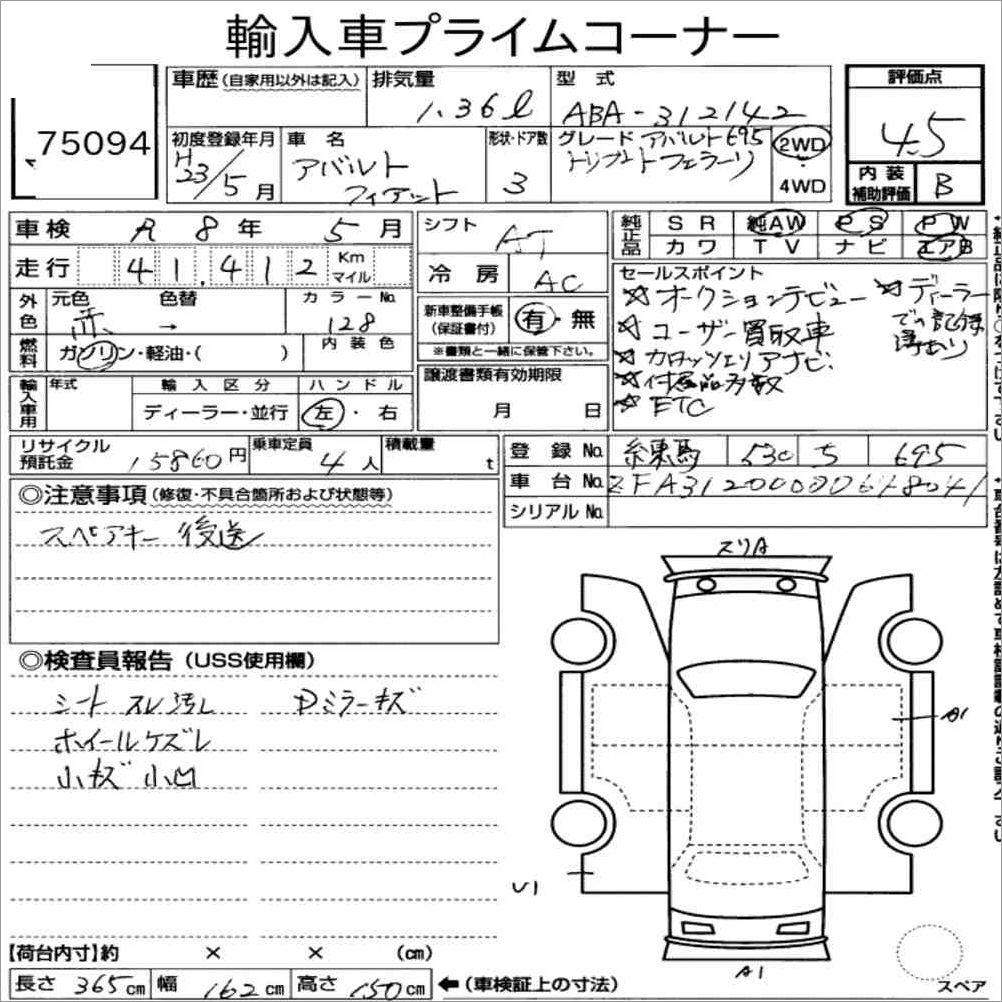 輸入車プライムコーナー
75094
車歴(自家用以外は記入)
排気量
1.36ℓ
型式
ABA-312142
評価点
4.5
初度登録年月
H23/5月
車名
アバルト
フィアット
形状・ドア数
3
グレード アバルト695
トリブートフェラーリ
2WD
・
4WD
内装
補助評価
B
車検 R 8年 5月
走行 41,412 Km
マイル
外色
元色 色替
赤 →
カラーNo.
128
燃料
ガソリン・軽油・( )
内装色
輸入車用
年式
輸入区分
ディーラー・並行
ハンドル
左・右
シフト
AT
冷房
AC
新車整備手帳
(保証書付)
有・無
※書類と一緒に保管下さい。
譲渡書類有効期限
月 日
純正品
SR 純AW PS PW
カワ TV ナビ エアB
セールスポイント
☆オークションデビュー
☆ユーザー買取車
☆カロッツェリアナビ
☆付属品多数
☆ETC
☆ディーラー
での記録
簿あり
リサイクル
預託金
15860円
乗車定員
4人
積載量
t
登録No.
練馬 530 695
車台No.
シリアルNo.
◎注意事項(修復・不具合箇所および状態等)
スペアキー 後送
◎検査員報告(USS使用欄)
シート スレ汚レ
ホイールケズレ
小キズ 小凹
Dミラーキズ
スリA
A1
U1
A1
スペア
【荷台内寸】約 × × (cm)
長さ 365cm 幅 162cm 高さ 150cm ←(車検証上の寸法)